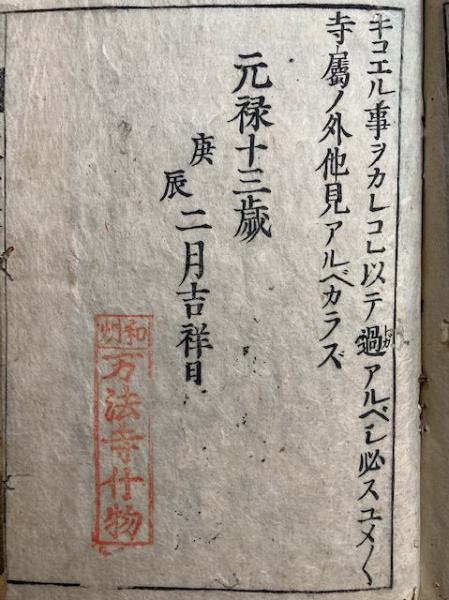 キコエル事ヲカレコレ以テ過トガアルベシ必スユメ〱
寺屬ノ外他見アルベカラズ
元禄十三歳
庚辰二月吉祥日
和州
万法寺什物